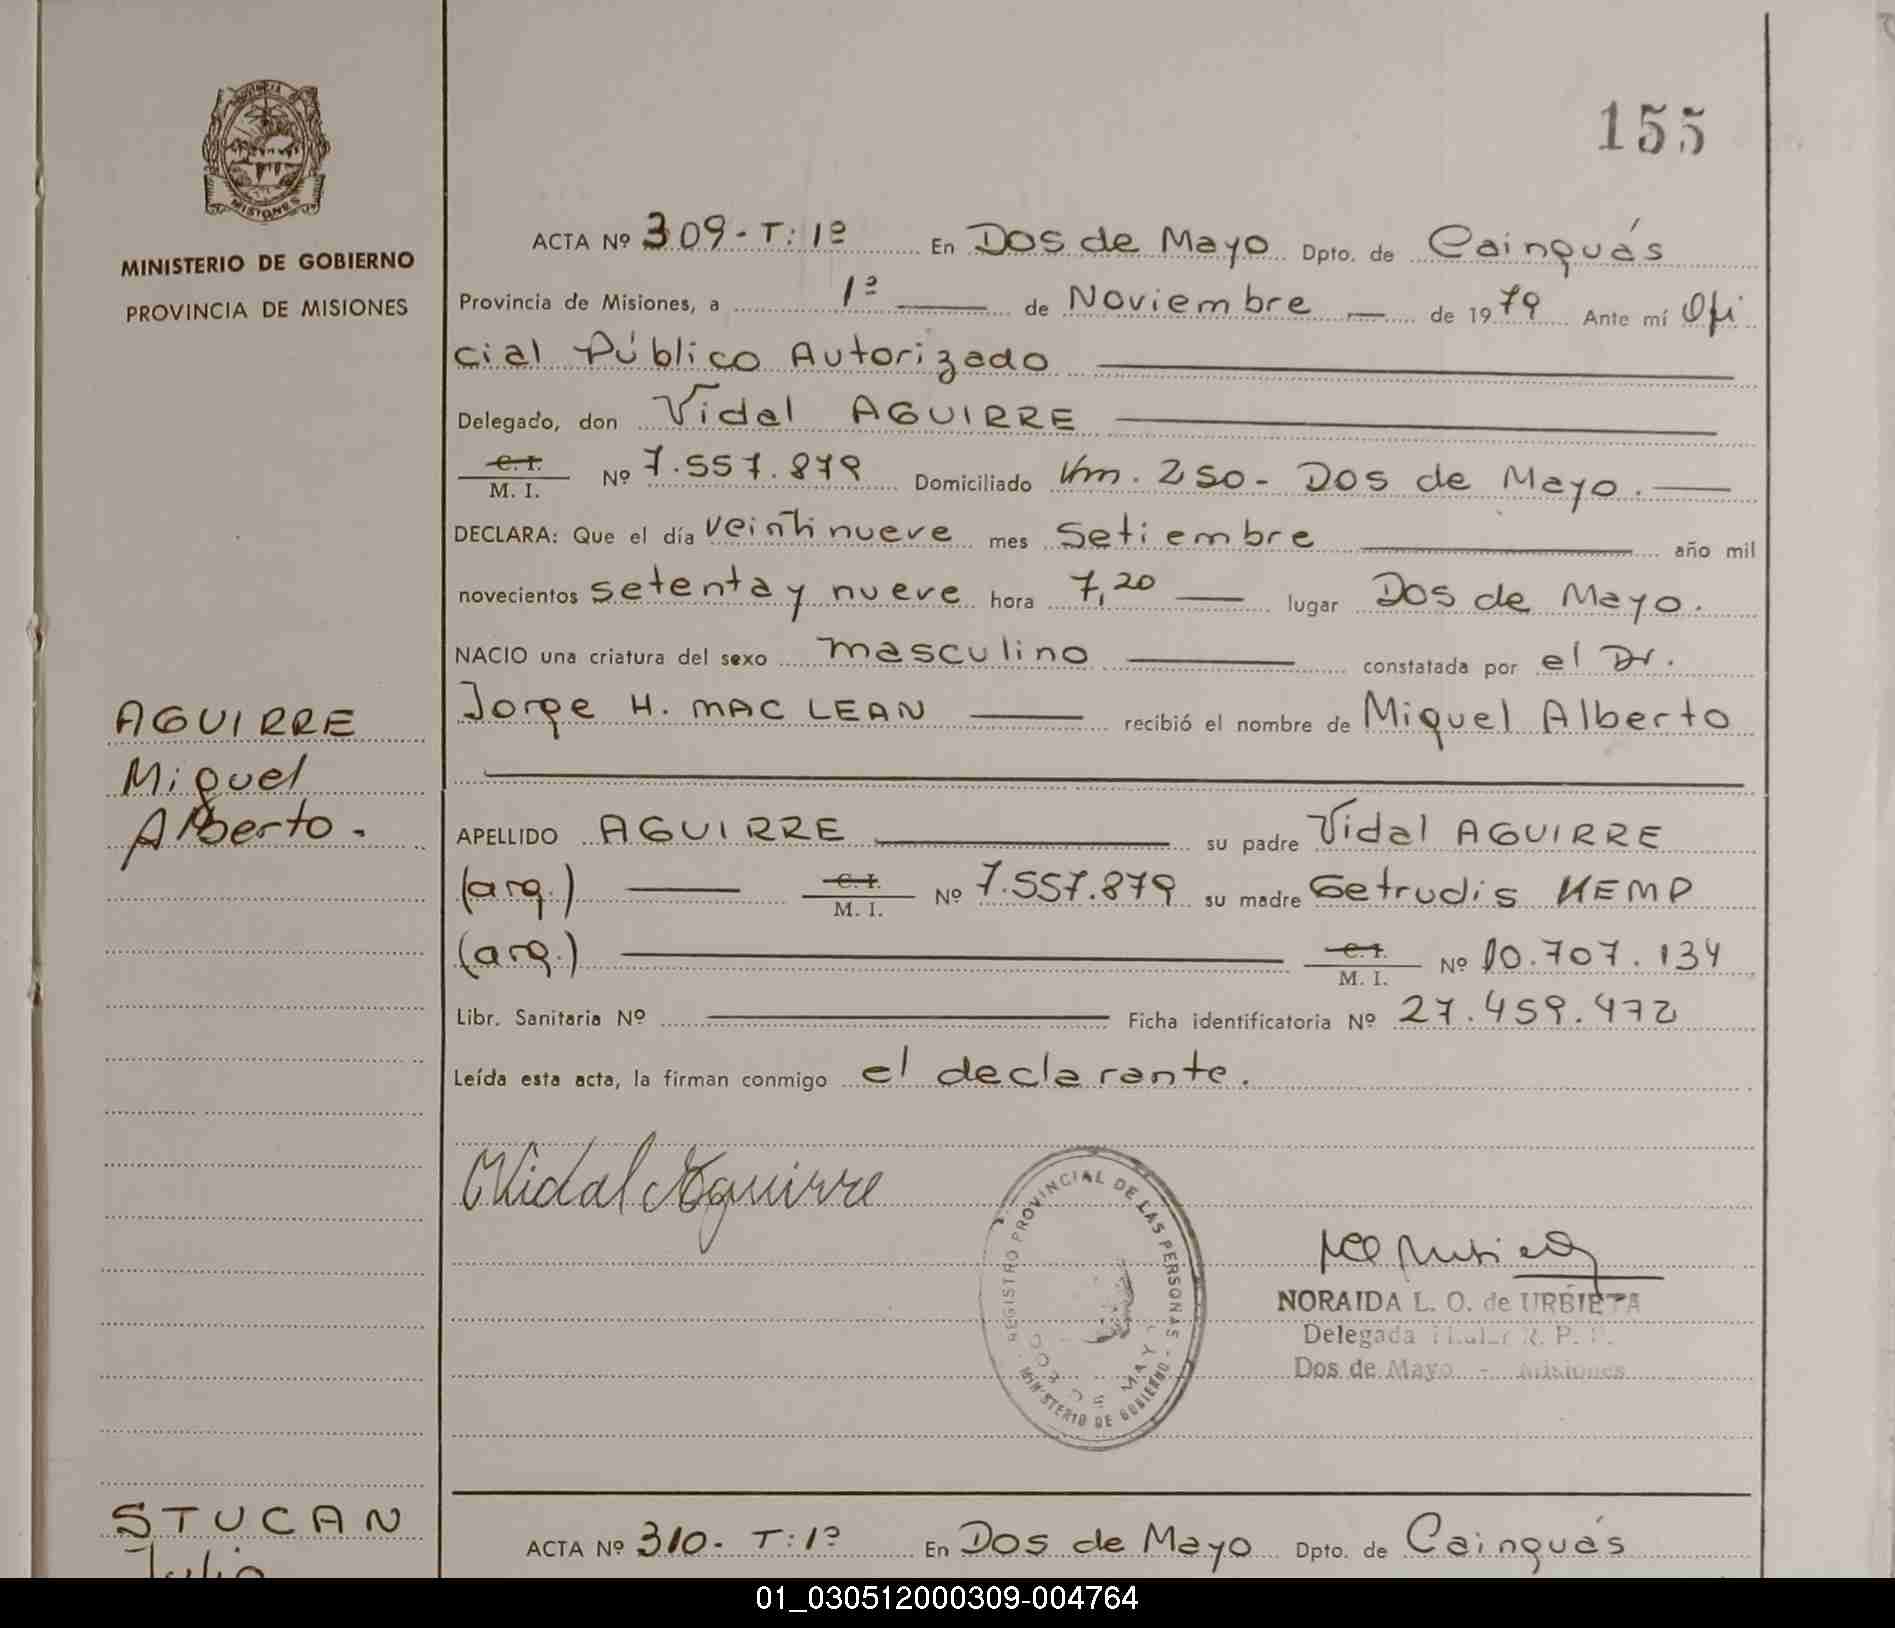 155
MINISTERIO DE GOBIERNO
PROVINCIA DE MISIONES
ACTA Nº 309 - T: 1º En Dos de Mayo Dpto. de Cainguás
Provincia de Misiones, a 1º de Noviembre de 1979 Ante mí Ofi
cial Público Autorizado
Delegado, don Vidal AGUIRRE
C. I.
M. I. Nº 7.557.879 Domiciliado Km. 250 - Dos de Mayo.
DECLARA: Que el día veintinueve mes Setiembre año mil
novecientos setenta y nueve hora 7,20 lugar Dos de Mayo.
NACIO una criatura del sexo masculino constatada por el Dr.
Jorge H. MAC LEAN recibió el nombre de Miguel Alberto
AGUIRRE
Miguel
Alberto.
APELLIDO AGUIRRE su padre Vidal AGUIRRE
(arg.) C. I.
M. I. Nº 7.557.879 su madre Getrudis KEMP
(arg.) C. I.
M. I. Nº 10.707.134
Libr. Sanitaria Nº Ficha identificatoria Nº 27.459.472
Leída esta acta, la firman conmigo el declarante.
Vidal Aguirre
REGISTRO PROVINCIAL DE LAS PERSONAS
MINISTERIO DE GOBIERNO
NORAIDA L. O. de URBIETA
Delegada Titular R. P. P.
Dos de Mayo - Misiones
STUCAN
Julio
ACTA Nº 310 - T: 1º En Dos de Mayo Dpto. de Cainguás
01_030512000309-004764